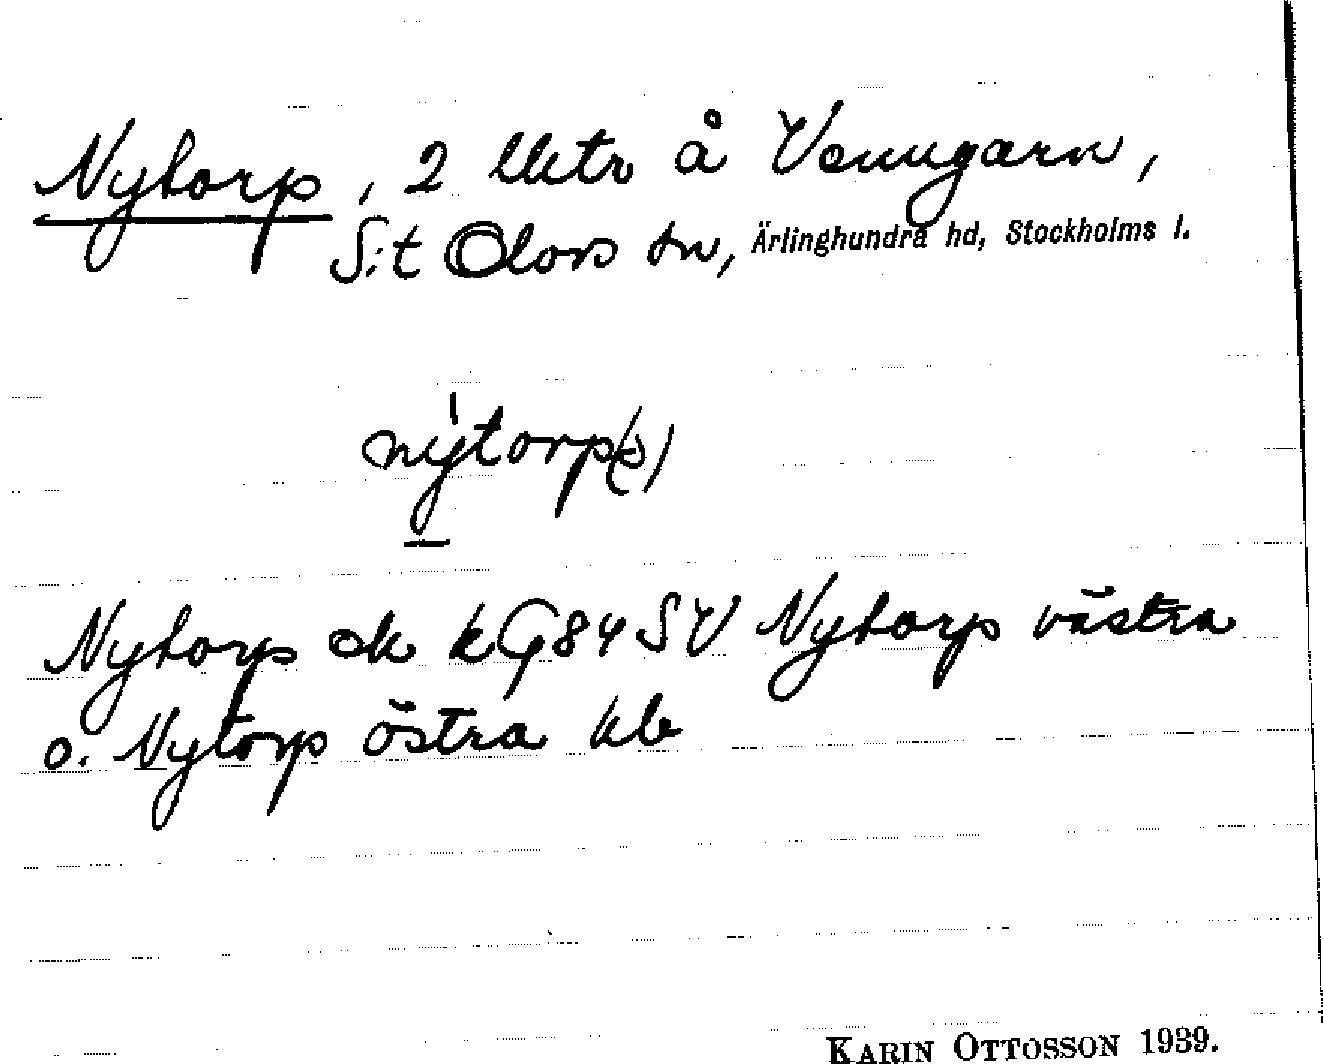 Nytorp, 2 lhtr å Venngarn,
S:t Olovs sn, Ärlinghundra hd, Stockholms l.
nýtorp(ə)
Nytorp ek kG84SV Nytorp västra
o. Nytorp östra kb
KARIN OTTOSSON 1939.